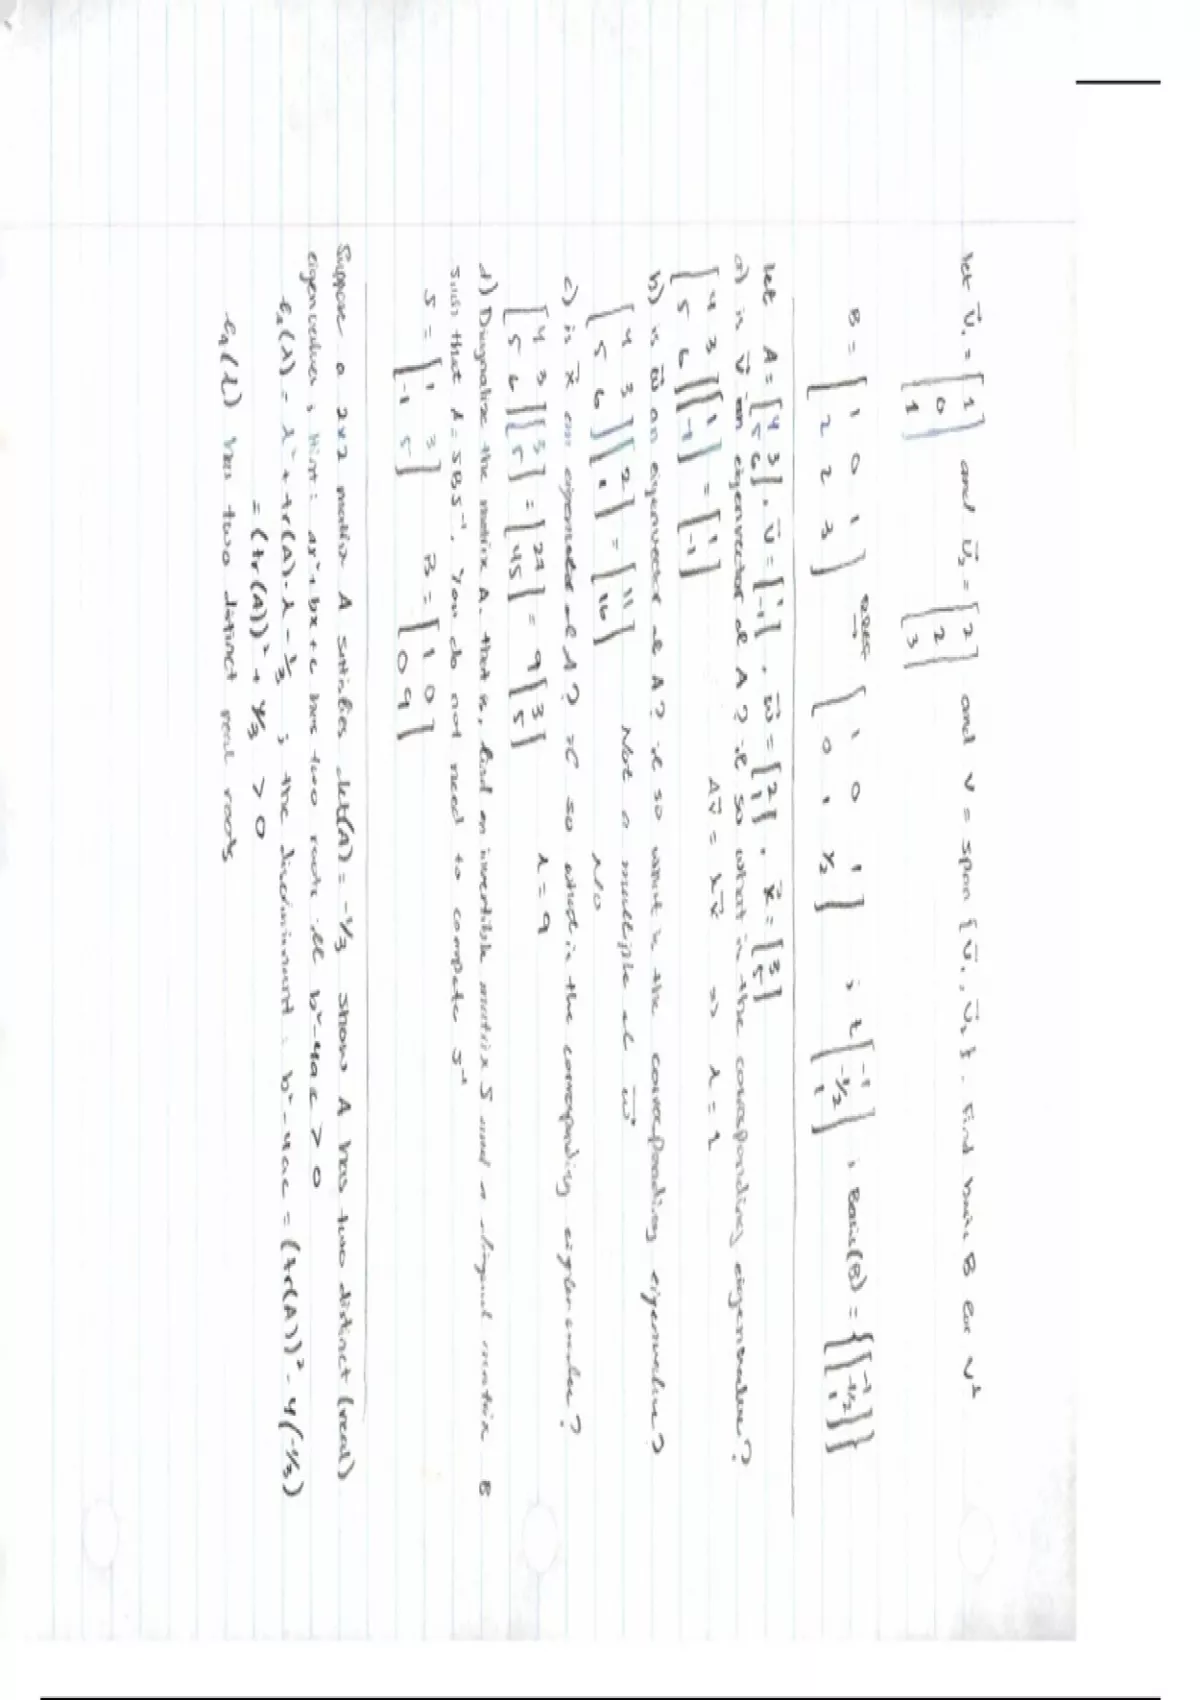 let v⃗₁ = [1 0 1] and v⃗₂ = [2 2 3] and V = span {v⃗₁, v⃗₂}. Find basis B for V⊥
B = [1 0 1; 2 2 3] RREF → [1 0 1; 0 1 1/2] ; t[-1 -1/2 1] , Basis(B) = {[-1 -1/2 1]}
let A = [4 3; 5 6], v⃗ = [1 -1], w⃗ = [2 1], x⃗ = [3 5]
a) is v⃗ an eigenvector of A? if so what is the corresponding eigenvalue?
[4 3; 5 6][1 -1] = [1 -1] Av⃗ = λv⃗ => λ = 1
b) is w⃗ an eigenvector of A? if so what is the corresponding eigenvalue?
[4 3; 5 6][2 1] = [11 16] Not a multiple of w⃗
No
c) is x⃗ an eigenvector of A? if so what is the corresponding eigenvalue?
[4 3; 5 6][3 5] = [27 45] = 9[3 5] λ = 9
d) Diagnalize the matrix A. that is, find an invertible matrix S and a diagonal matrix B
such that A = SBS⁻¹. You do not need to compute S⁻¹
S = [1 3; -1 5] B = [1 0; 0 9]
Suppose a 2x2 matrix A satisfies det(A) = -1/3 show A has two distinct (real)
eigenvalues ; Hint: ax² + bx + c has two roots iff b² - 4ac > 0
(λ) = λ² + tr(A)·λ - 1/3 ; the discriminant : b² - 4ac = (tr(A))² - 4(-1/3)
= (tr(A))² + 4/3 > 0
(λ) has two distinct real roots